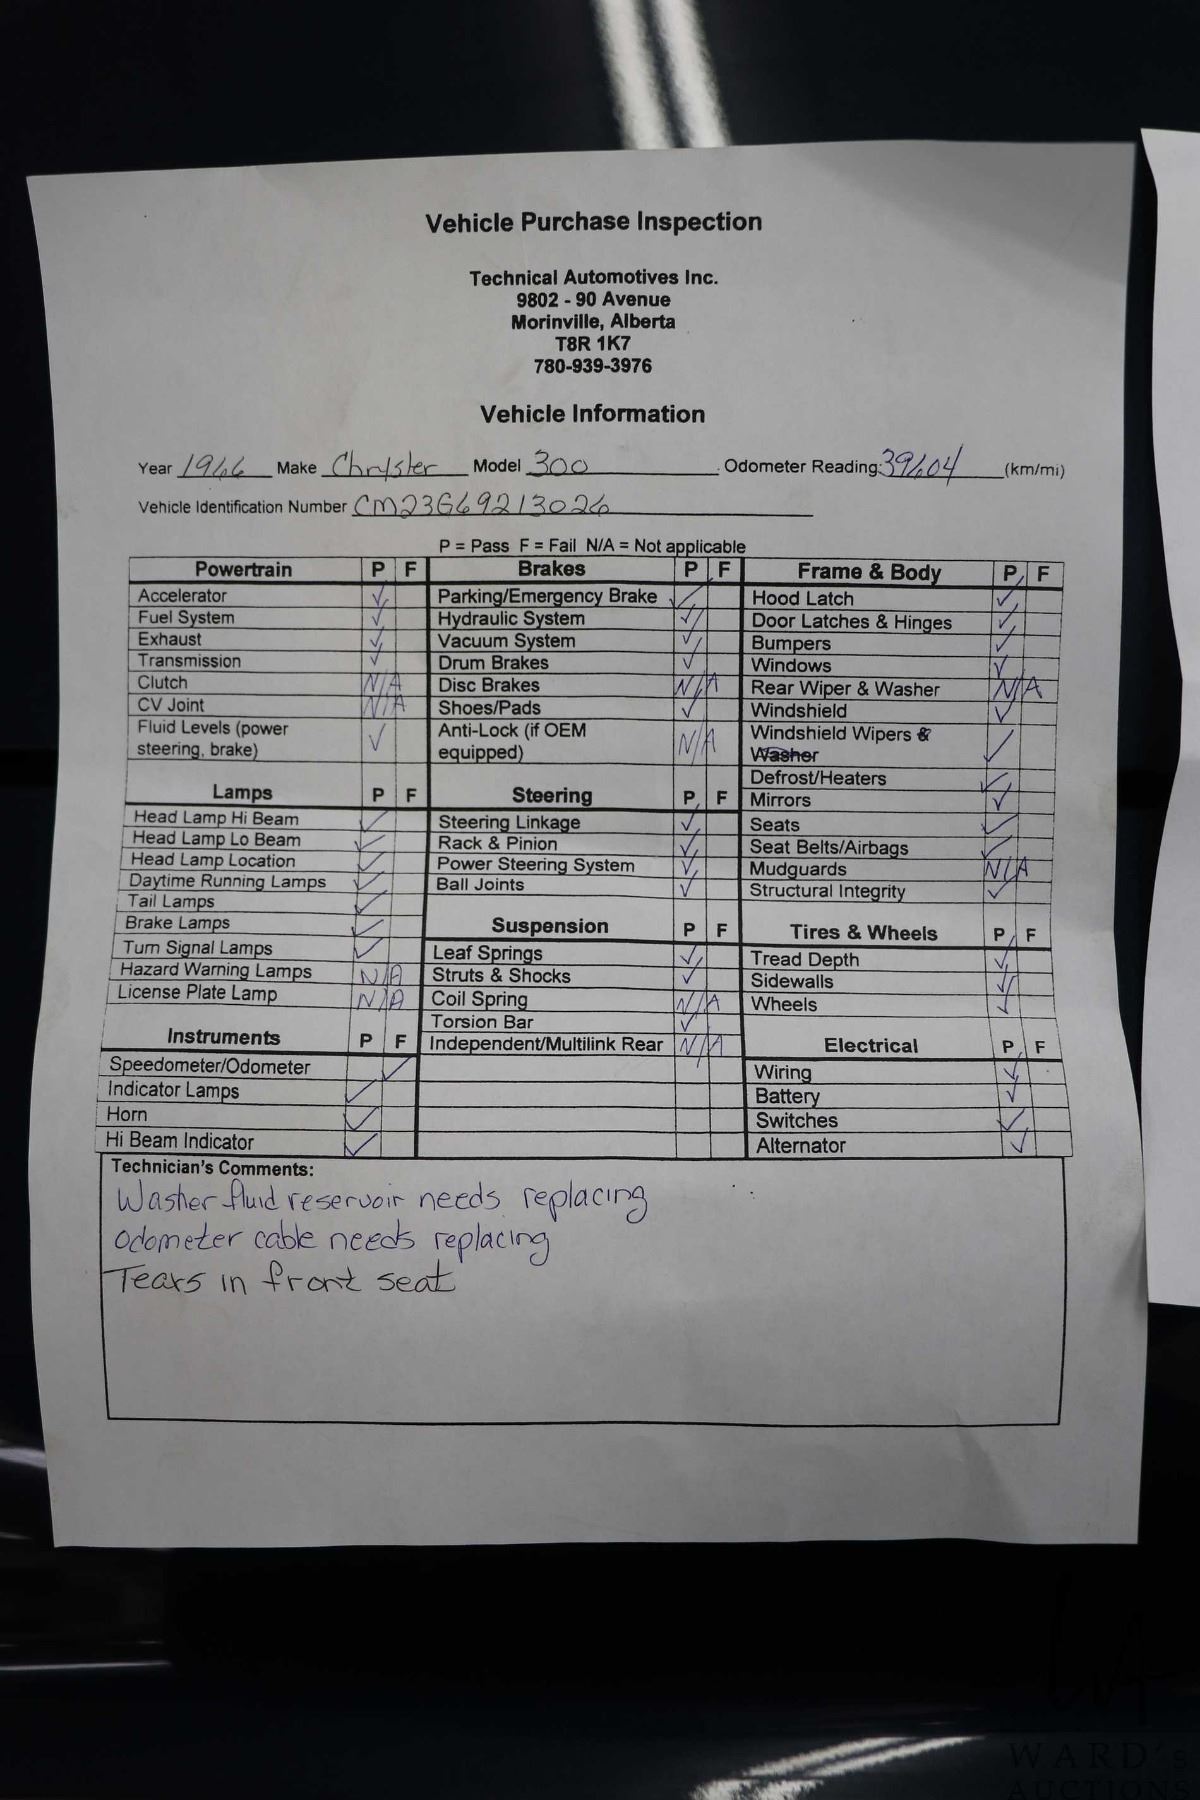 Vehicle Purchase Inspection
Technical Automotives Inc.
9802 - 90 Avenue
Morinville, Alberta
T8R 1K7
780-939-3976
Vehicle Information
Year 1966 Make Chrysler Model 300 Odometer Reading: 39604 (km/mi)
Vehicle Identification Number CM23G69213026
P = Pass F = Fail N/A = Not applicable
Powertrain P F
Accelerator ✓
Fuel System ✓
Exhaust ✓
Transmission ✓
Clutch N/A
CV Joint N/A
Fluid Levels (power
steering, brake) ✓
Lamps P F
Head Lamp Hi Beam ✓
Head Lamp Lo Beam ✓
Head Lamp Location ✓
Daytime Running Lamps ✓
Tail Lamps ✓
Brake Lamps ✓
Turn Signal Lamps ✓
Hazard Warning Lamps N/A
License Plate Lamp N/A
Instruments P F
Speedometer/Odometer ✓
Indicator Lamps ✓
Horn ✓
Hi Beam Indicator ✓
Brakes P F
Parking/Emergency Brake ✓
Hydraulic System ✓
Vacuum System ✓
Drum Brakes ✓
Disc Brakes N/A
Shoes/Pads ✓
Anti-Lock (if OEM
equipped) N/A
Steering P F
Steering Linkage ✓
Rack & Pinion ✓
Power Steering System ✓
Ball Joints ✓
Suspension P F
Leaf Springs ✓
Struts & Shocks ✓
Coil Spring N/A
Torsion Bar ✓
Independent/Multilink Rear N/A
Frame & Body P F
Hood Latch ✓
Door Latches & Hinges ✓
Bumpers ✓
Windows ✓
Rear Wiper & Washer N/A
Windshield ✓
Windshield Wipers &
Washer ✓
Defrost/Heaters ✓
Mirrors ✓
Seats ✓
Seat Belts/Airbags ✓
Mudguards N/A
Structural Integrity ✓
Tires & Wheels P F
Tread Depth ✓
Sidewalls ✓
Wheels ✓
Electrical P F
Wiring ✓
Battery ✓
Switches ✓
Alternator ✓
Technician's Comments:
Washer fluid reservoir needs replacing
odometer cable needs replacing
Tears in front seat
WARD's
AUCTIONS